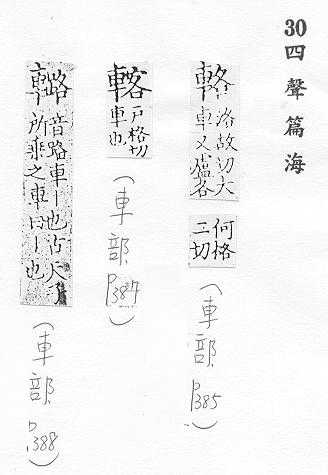 30四聲篇海
輅洛故切大車又盧各何格三切
(車部P385)
戶格切車也
(車部P387)
音路車丨也古天子所乘之車曰丨也
(車部P388)